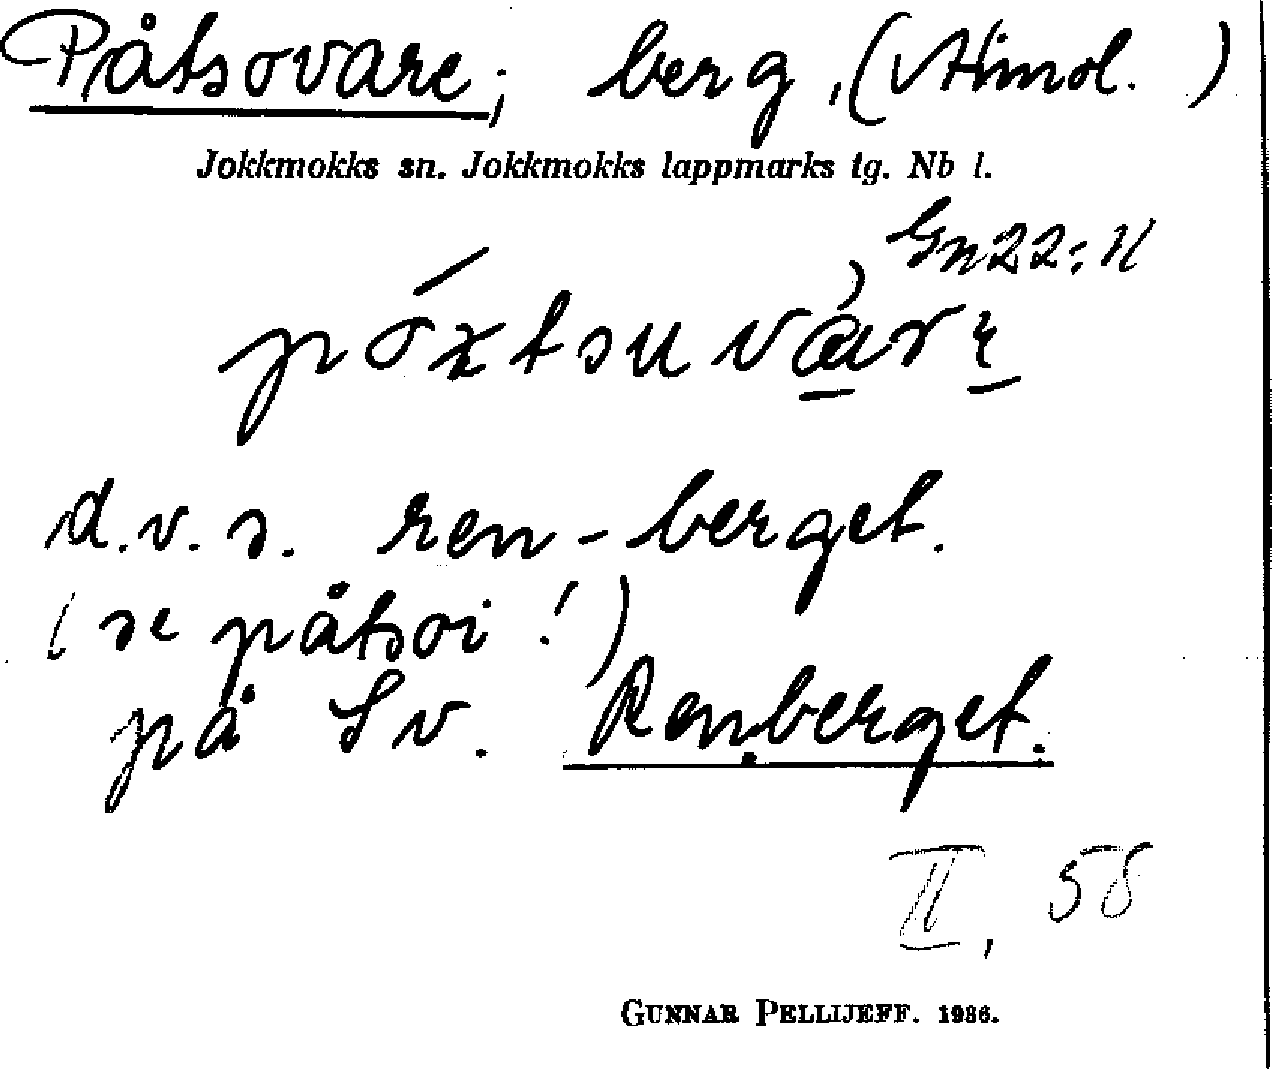 Påtsovare; berg, (Aimol.)
Jokkmokks sn. Jokkmokks lappmarks tg. Nb l.
Gn22:11
póxtsuvárı
d.v.s. ren-berget.
(se påtsoi!)
på Sv. Renberget.
II, 58
GUNNAR PELLIJEFF. 1986.